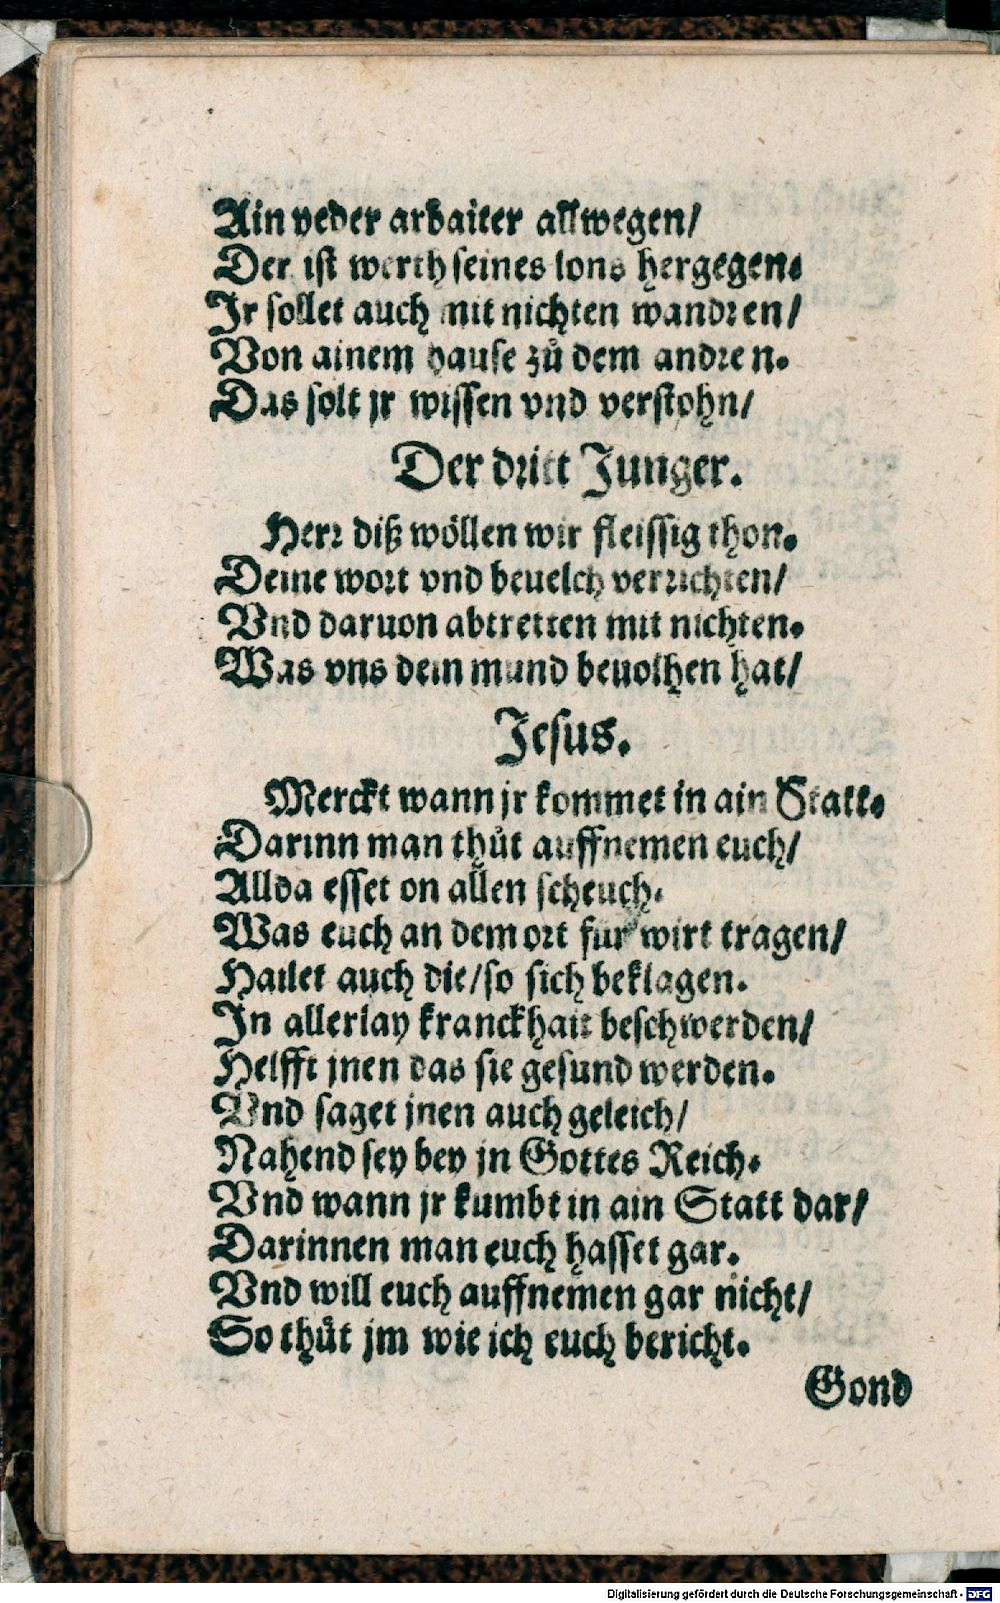 Ain yeder arbaiter allwegen/
Der ist werth seines lons hergegen.
Jr sollet auch mit nichten wandren/
Von ainem hause zů dem andren.
Das solt jr wissen vnd verstohn/
Der dritt Junger.
Herr diß wöllen wir fleissig thon.
Deine wort vnd beuelch verrichten/
Vnd daruon abtretten mit nichten.
Was vns dein mund beuolhen hat/
Jesus.
Merckt wann jr kommet in ain Statt.
Darinn man thůt auffnemen euch/
Allda esset on allen scheuch.
Was euch an dem ort für wirt tragen/
Hailet auch die/so sich beklagen.
In allerlay kranckhait beschwerden/
Helfft jnen das sie gesund werden.
Vnd saget jnen auch geleich/
Nahend sey bey jn Gottes Reich.
Vnd wann jr kumbt in ain Statt dar/
Darinnen man euch hasset gar.
Vnd will euch auffnemen gar nicht/
So thůt jm wie ich euch bericht.
Gond
Digitalisierung gefördert durch die Deutsche Forschungsgemeinschaft - DFG